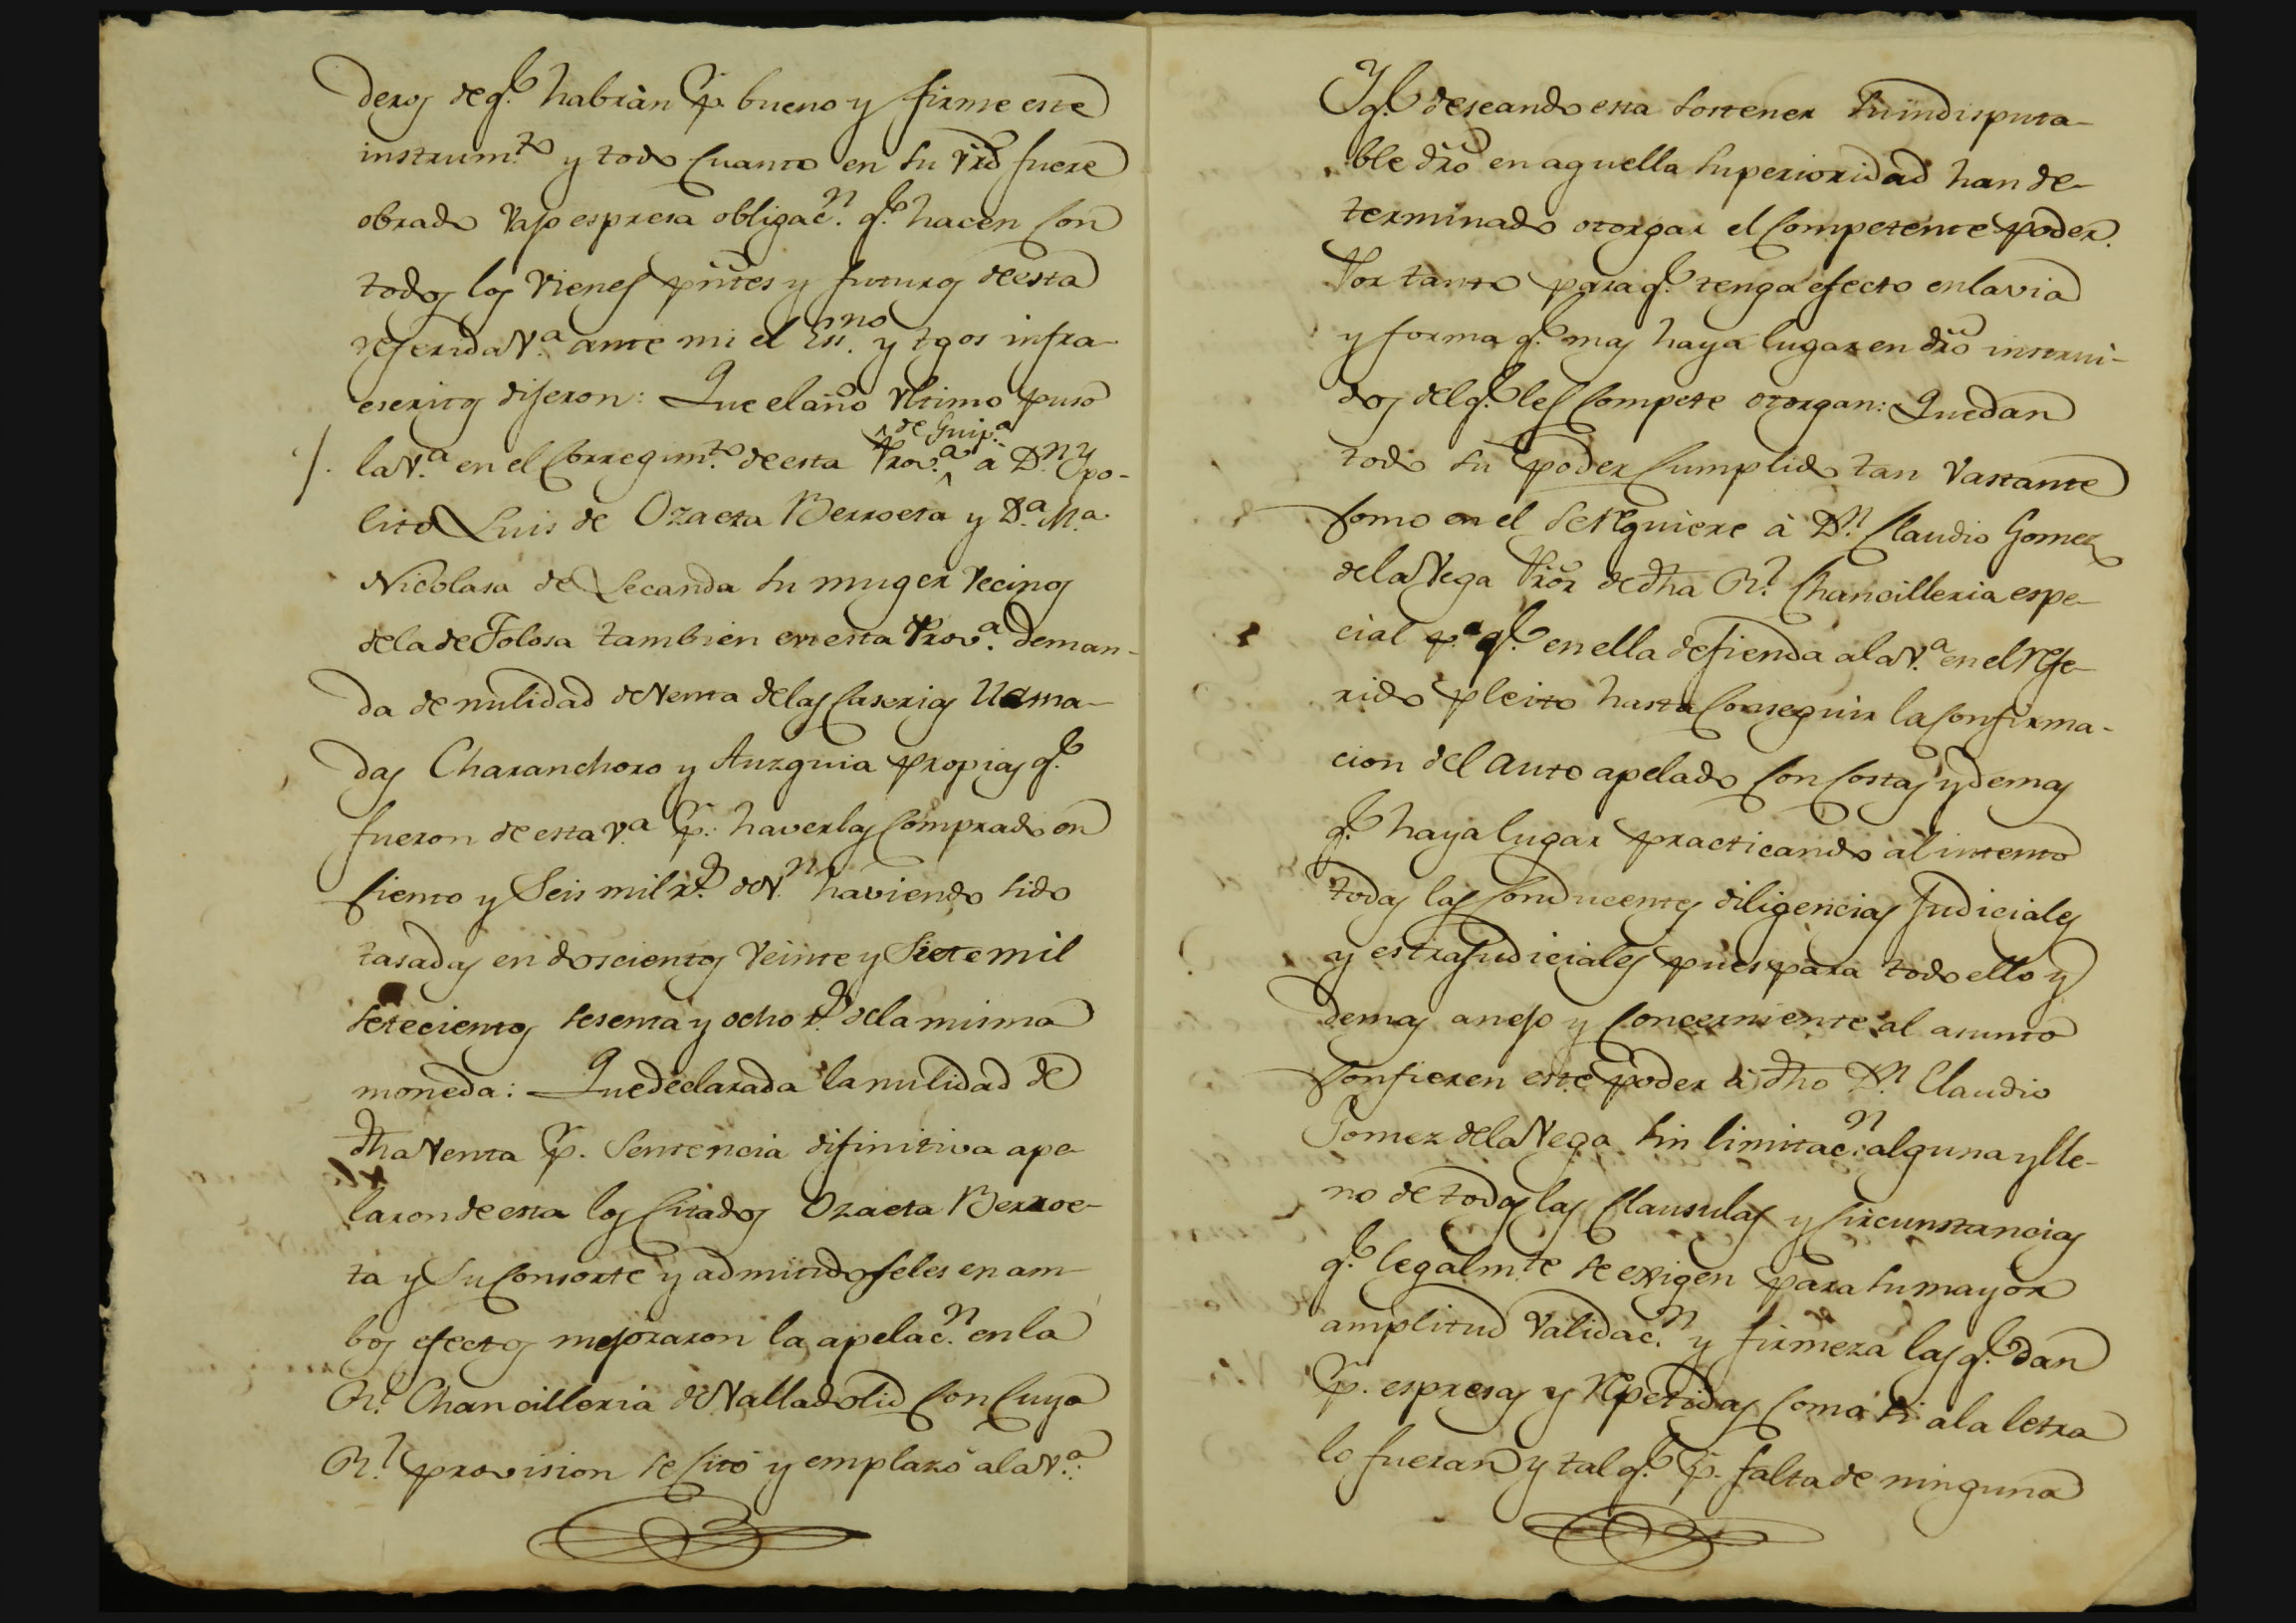 deros de q.e habrán p.r bueno y firme este
instrum.to y todo cuanto en su vrd fuere
obrado vajo espresa obligac.n q.e hacen con
todos los vienes pntes y futuros de esta
referida V.a ante mi el Ess.no y tgos infra-
escritos dijeron: Que el año ultimo puso
la V.a en el Corregim.to de esta Prov.a de Guip.a á D.n Ypo-
lito Luis de Ozaeta Berroeta y D.a M.a
Nicolasa de Lecanda su muger vecinos
de la de Tolosa tambien en esta Prov.a deman-
da de nulidad de venta de las caserias llama-
das Charanchoro y Auzquia propias q.e
fueron de esta V.a p.r haverlas comprado en
ciento y seis mil r.s de v.n haviendo sido
tasadas en doscientos veinte y siete mil
setecientos sesenta y ocho r.s de la misma
moneda: Que declarada la nulidad de
dha venta p.r sentencia difinitiva ape-
laron de esta los citados Ozaeta Berroe-
ta y su consorte y admitidoseles en am-
bos efectos mejoraron la apelac.n en la
R.l Chancilleria de Valladolid con cuya
R.l provision se citó y emplazó a la V.a:
Y q.e deseando esta sostener su indisputa-
ble dro en aquella superioridad han de-
terminado otorgar el competente poder.
Por tanto para q.e tenga efecto en la via
y forma q.e mas haya lugar en dro instrui-
dos del q.e les compete otorgan: Que dan
todo su poder cumplido tan vastante
como en el se requiere á D.n Claudio Gomez
de la Vega Pror de dha R.l Chancilleria espe-
cial p.a q.e en ella defienda a la V.a en el refe-
rido pleito hasta conseguir la confirma-
cion del auto apelado con costas y demas
q.e haya lugar practicando al intento
todas las conducentes diligencias judiciales
y estrajudiciales pues para todo ello y
demas anejo y concerniente al asunto
confieren este poder á dho D.n Claudio
Gomez de la Vega sin limitac.n alguna y lle-
no de todas las clausulas y circunstancias
q.e legalmte se exigen para su mayor
amplitud validac.n y firmeza las q.e dan
p.r espresas y repetidas como si a la letra
lo fueran y tal q.e p.r falta de ninguna